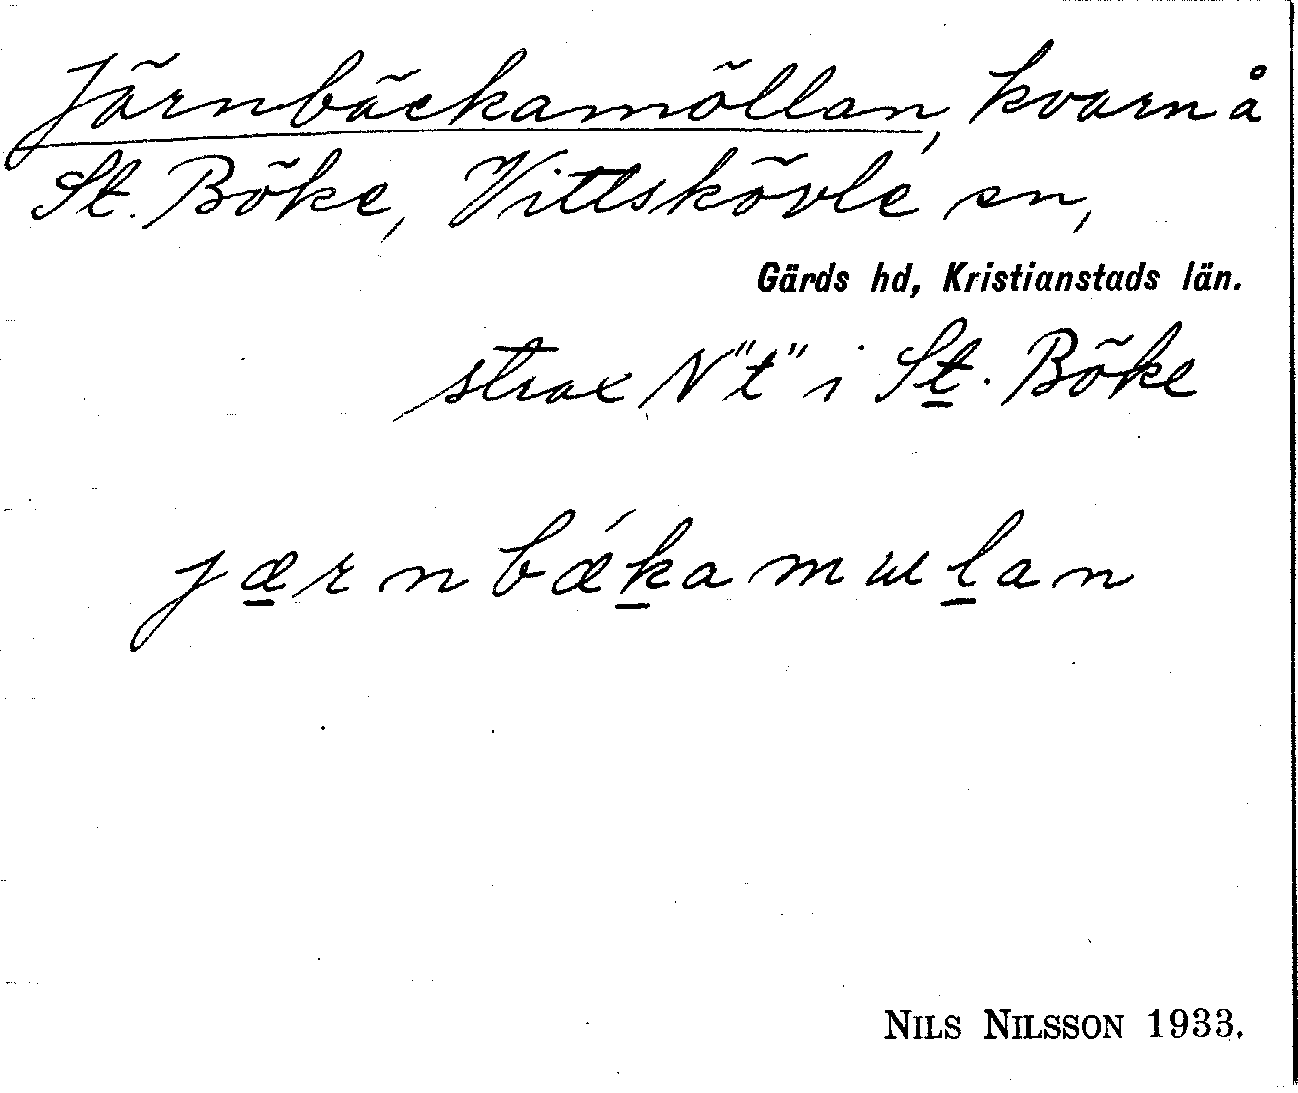 Järnbäckamöllan, kvarn å
St. Böke, Vittskövle sn,
Gärds hd, Kristianstads län.
strax N "t" i St. Böke
jærnbǽkamulan
NILS NILSSON 1933.